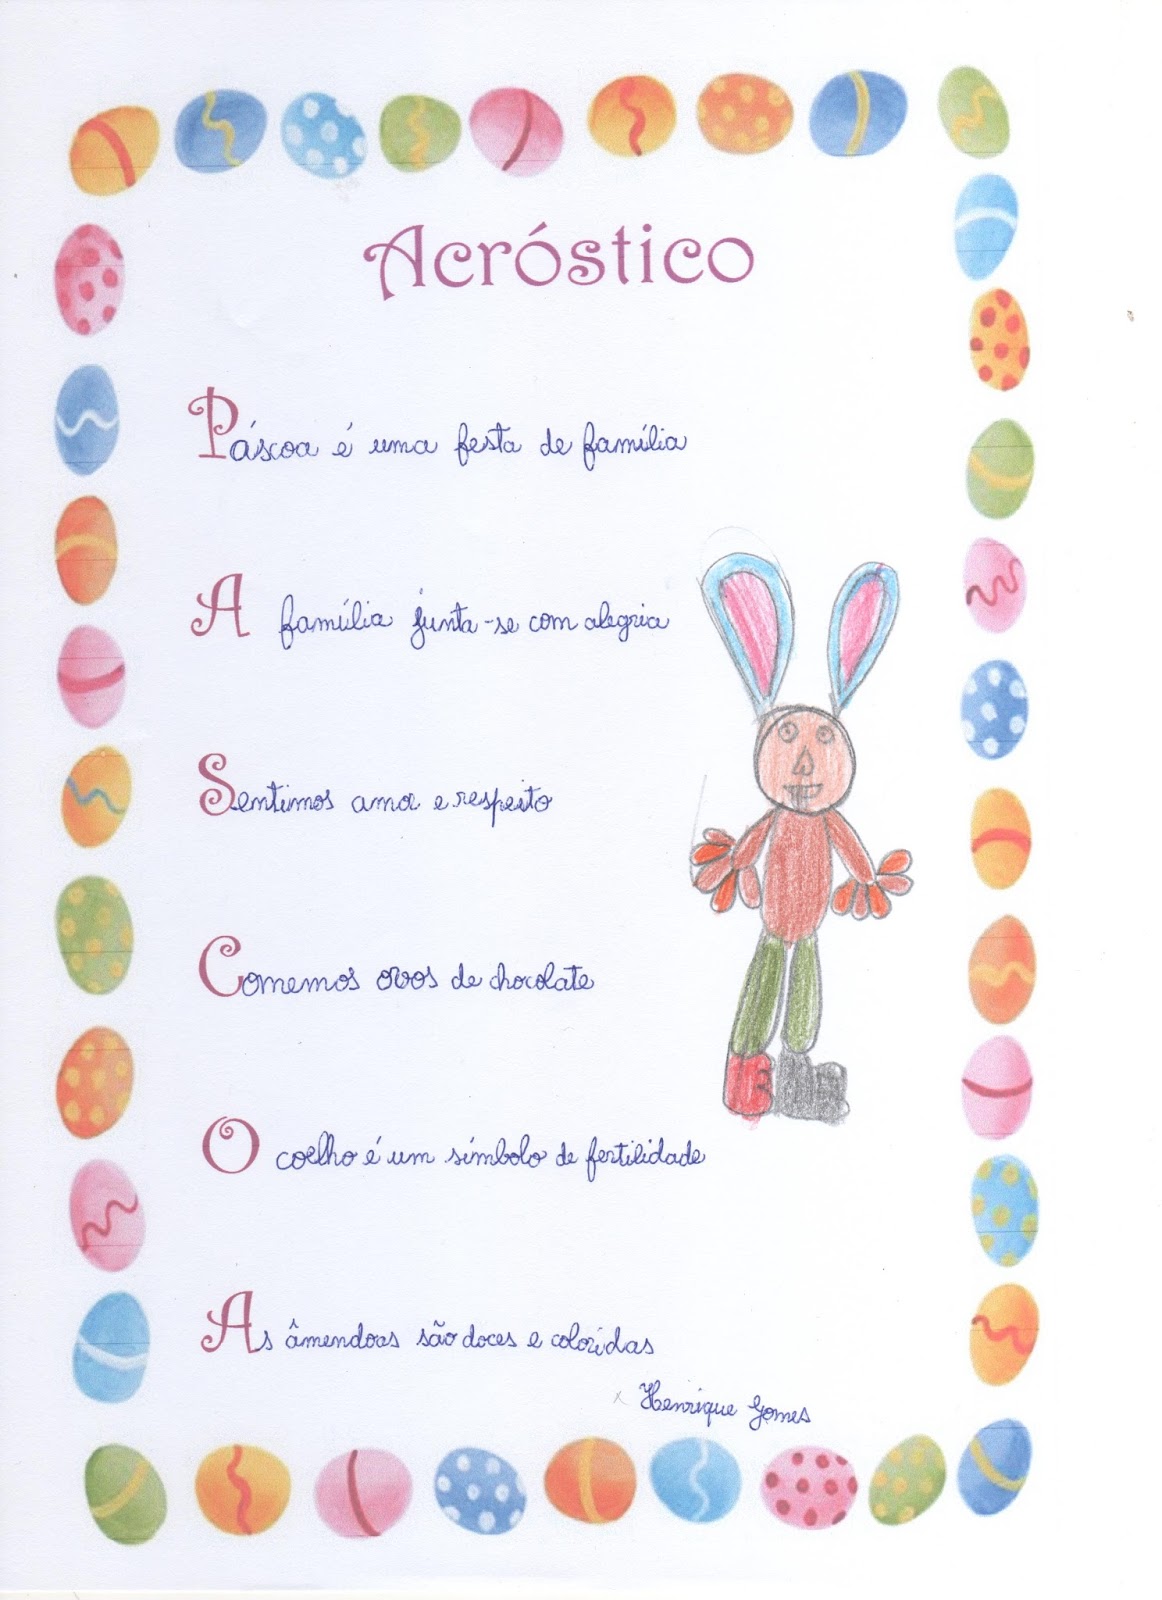 Acróstico
Páscoa é uma festa de família
A família junta-se com alegria
Sentimos amor e respeito
Comemos ovos de chocolate
O coelho é um símbolo de fertilidade
As âmendoas são doces e coloridas
x Henrique Gomes